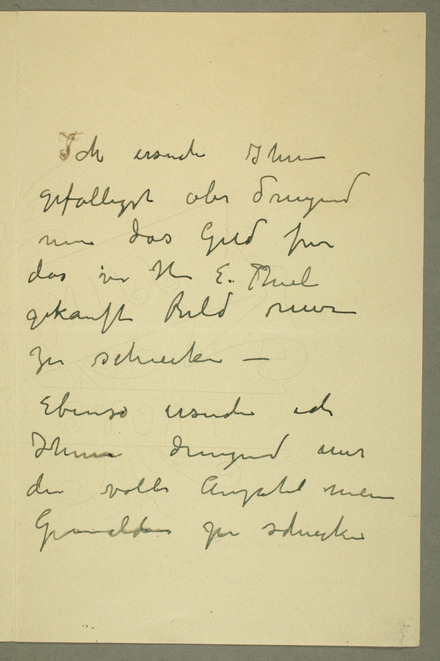 Ich ersuche Ihnen
gefälligst aber dringend
mir das Geld für
das von Hr E. Thiel
gekauft Bild mir
zu schicken —
Ebenso ersuche ich
Ihnen dringend mir
die volle Anzahl meine
Gemälden zu schicken